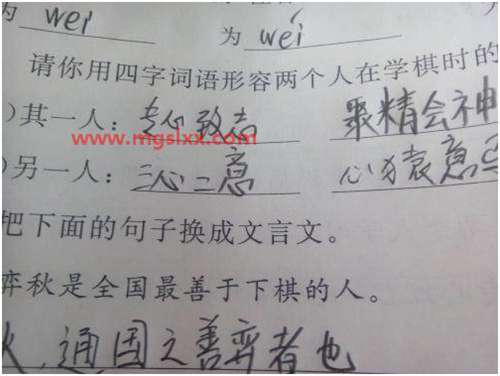 为 wei 为 wéi
请你用四字词语形容两个人在学棋时的
)其一人：专心致志 聚精会神
www.mgslxx.com
)另一人：三心二意 心猿意
把下面的句子换成文言文。
弈秋是全国最善于下棋的人。
通国之善弈者也